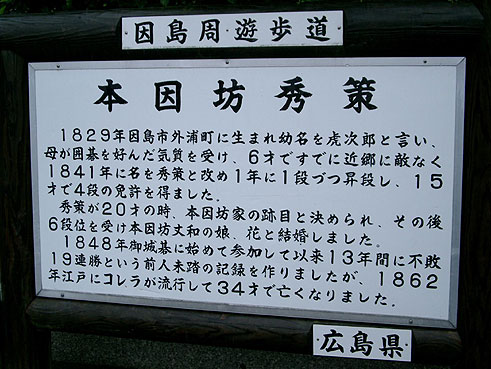 因島周遊歩道
本因坊秀策
1829年因島市外浦町に生まれ幼名を虎次郎と言い、
母が囲碁を好んだ気質を受け、6才ですでに近郷に敵なく
1841年に名を秀策と改め1年に1段づつ昇段し、15
才で4段の免許を得ました。
秀策が20才の時、本因坊家の跡目と決められ、その後
6段位を受け本因坊丈和の娘、花と結婚しました。
1848年御城碁に始めて参加して以来13年間に不敗
19連勝という前人未踏の記録を作りましたが、1862
年江戸にコレラが流行して34才で亡くなりました.
広島県